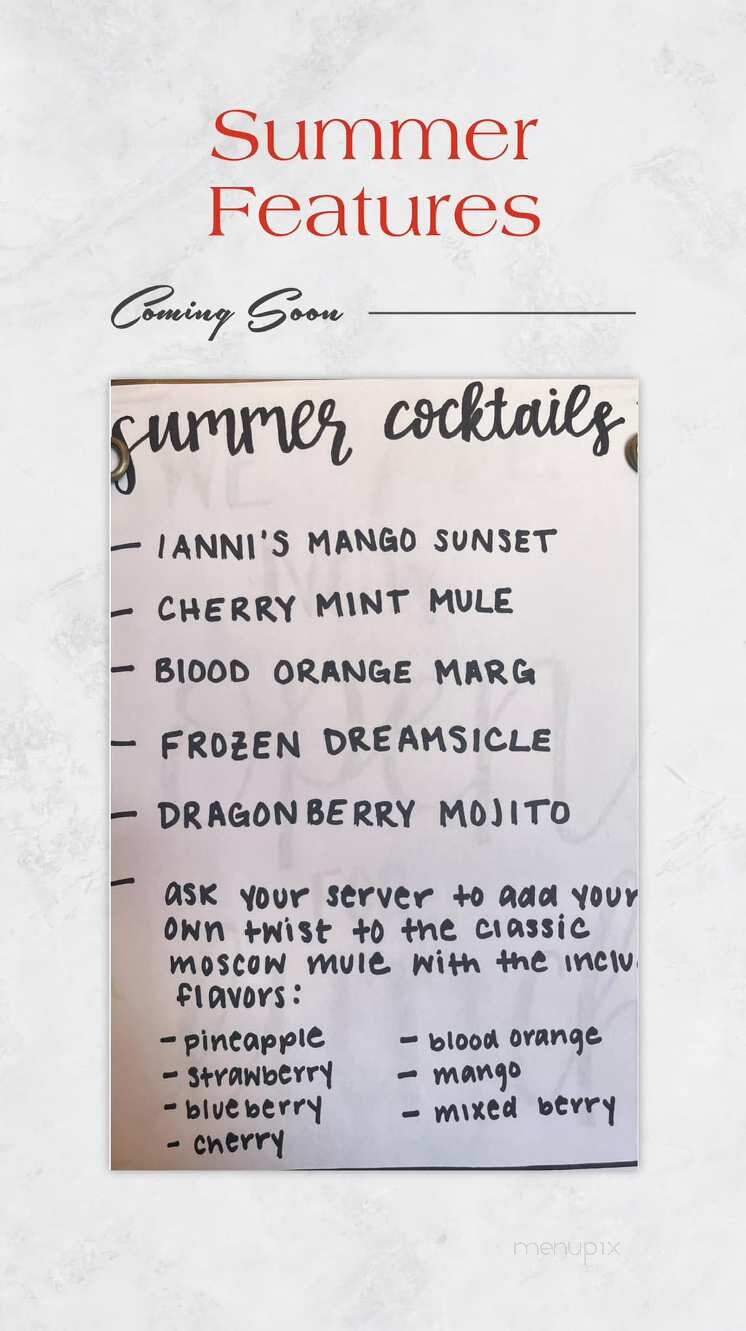 Summer
Features
Coming Soon
summer cocktails
- IANNI'S MANGO SUNSET
- CHERRY MINT MULE
- BLOOD ORANGE MARG
- FROZEN DREAMSICLE
- DRAGONBERRY MOJITO
- ask your server to add your
own twist to the classic
moscow mule with the inclu
flavors:
- pineapple - blood orange
- strawberry - mango
- blueberry - mixed berry
- cherry
menupix